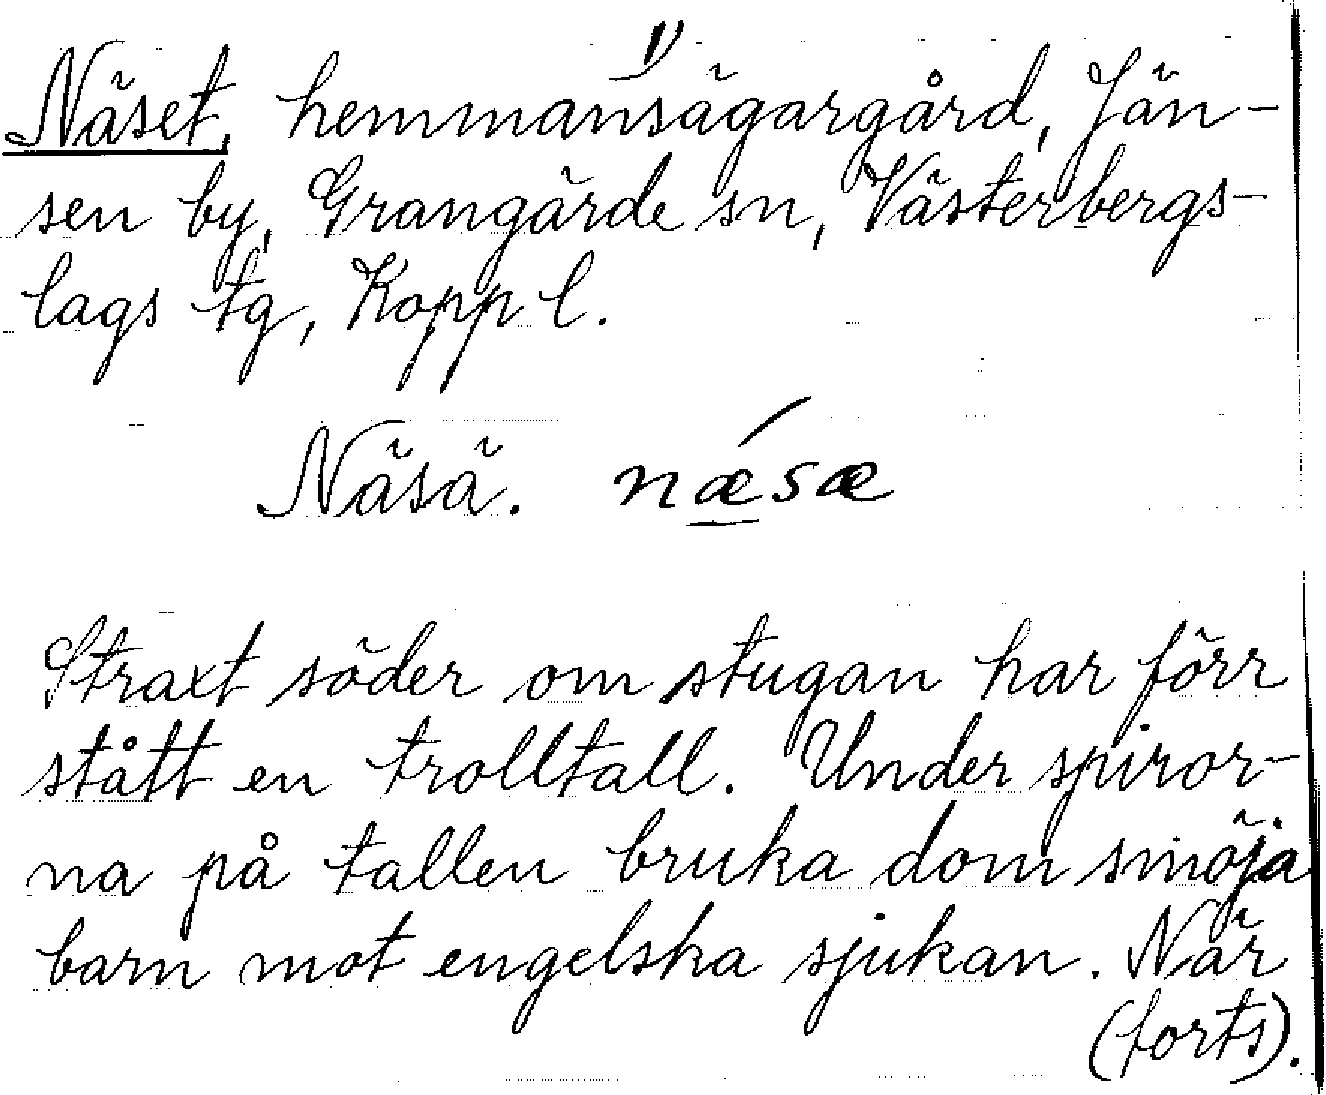 Näset, hemmansägargård, Jän-
sen by, Grangärde sn, Västerbergs-
lags tg, Kopp l.
Näsä. næsæ
Straxt söder om stugan har förr
stått en trolltall. Under spiror-
na på tallen bruka dom smöja
barn mot engelska sjukan. När
(forts).